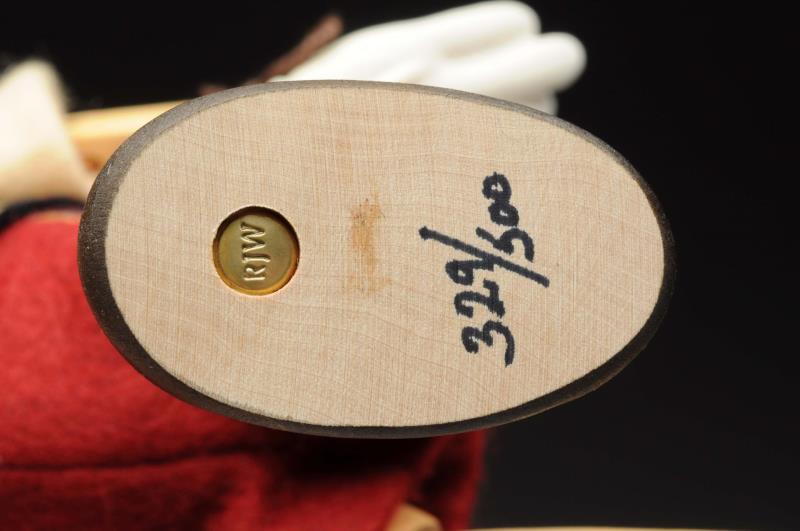 RJW
329/500